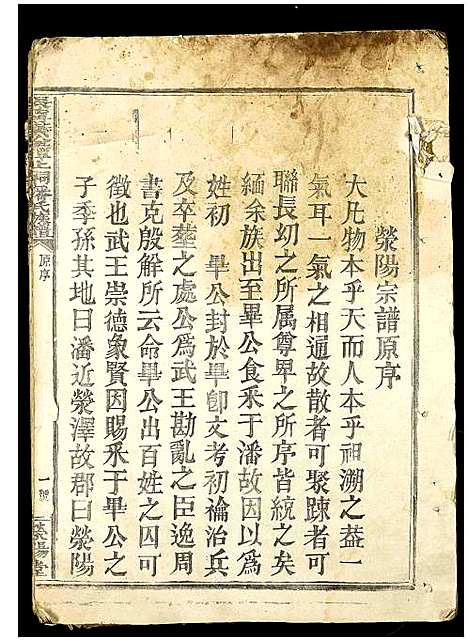 滎陽宗譜原序
大凡物本乎天而人本乎祖溯之葢一
氣耳一氣之相通故散者可聚踈者可
聯長幼之所属尊卑之所序皆統之矣
緬余族出至畢公食釆于潘故因以為
姓初　畢公封於畢卽文考初禴治兵
及卒塟之處公為武王勘亂之臣逸周
書克殷解所云命畢公出百姓之囚可
徵也武王崇德象賢因賜釆于畢公之
子季孫其地曰潘近滎澤故郡曰滎陽
潘氏族譜
原序
一號
滎陽堂